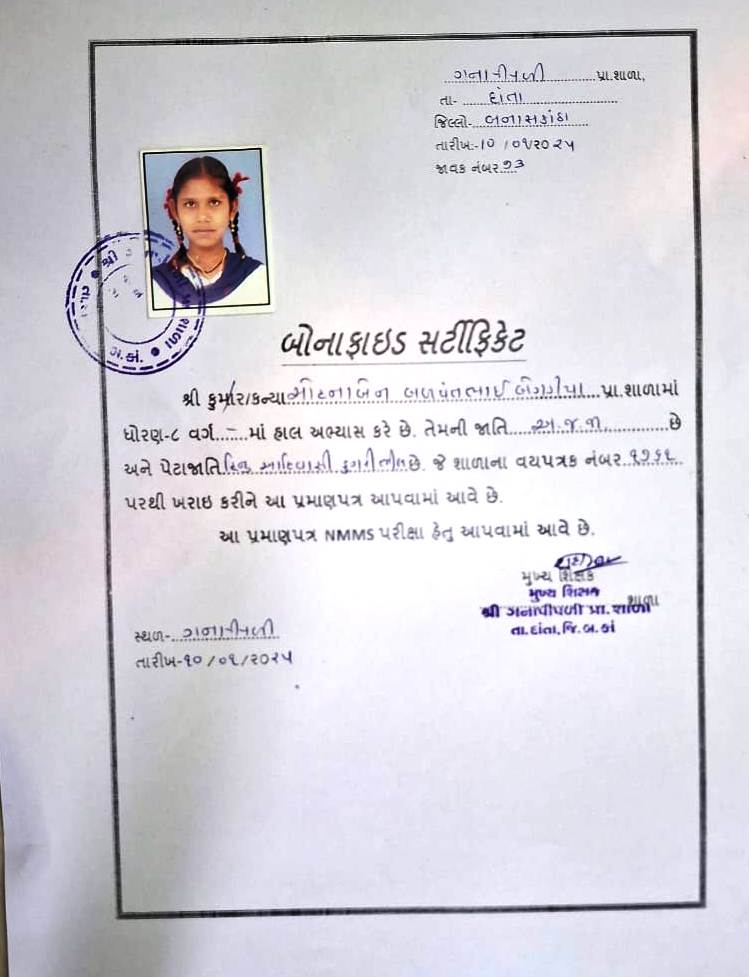 ગનાપીપળી પ્રા.શાળા,
તા- દાંતા
જિલ્લો- બનાસકાંઠા
તારીખ:-૧૦ /૦૧/૨૦૨૫
જાવક નંબર ૭૩
બોનાફાઇડ સર્ટીફિકેટ
શ્રી કુમાર/કન્યા બળવંતભાઈ પ્રા.શાળામાં
ધોરણ-૮ વર્ગ - માં હાલ અભ્યાસ કરે છે. તેમની જાતિ અ.જ.જા. છે
અને પેટાજાતિ હિન્દુ આદિવાસી ડુંગરી ભીલ છે. જે શાળાના વયપત્રક નંબર
પરથી ખરાઇ કરીને આ પ્રમાણપત્ર આપવામાં આવે છે.
આ પ્રમાણપત્ર NMMS પરીક્ષા હેતુ આપવામાં આવે છે.
મુખ્ય શિક્ષક
મુખ્ય શિક્ષક
શાળા
શ્રી ગનાપીપળી પ્રા. શાળા
તા.દાંતા, જિ.બ.કાં
સ્થળ- ગનાપીપળી
તારીખ-૧૦/૦૧/૨૦૨૫